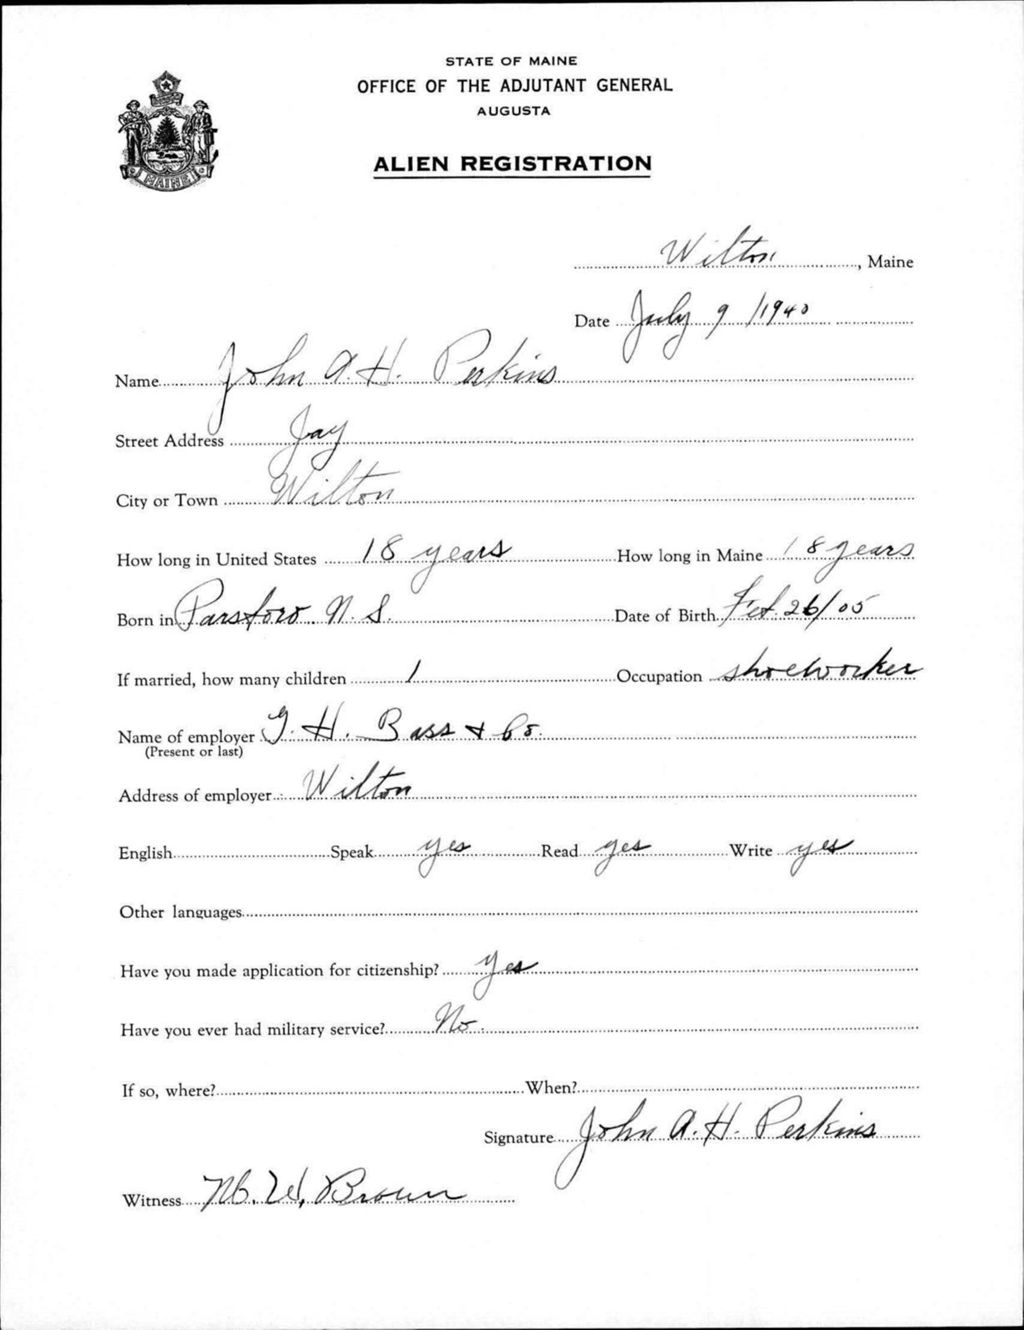 STATE OF MAINE
OFFICE OF THE ADJUTANT GENERAL
AUGUSTA
ALIEN REGISTRATION
MAINE
Wilton, Maine
Date July 9/1940
Name John A. H. Perkins
Street Address Jay
City or Town Wilton
How long in United States 18 years How long in Maine 18 years
Born in Parsforo N. S. Date of Birth Feb. 26/05
If married, how many children 1 Occupation shoeworker
Name of employer G. H. Bass & Co.
(Present or last)
Address of employer Wilton
English Speak yes Read yes Write yes
Other languages
Have you made application for citizenship? Yes
Have you ever had military service? No.
If so, where? When?
Signature John A. H. Perkins
Witness M. W. Brown